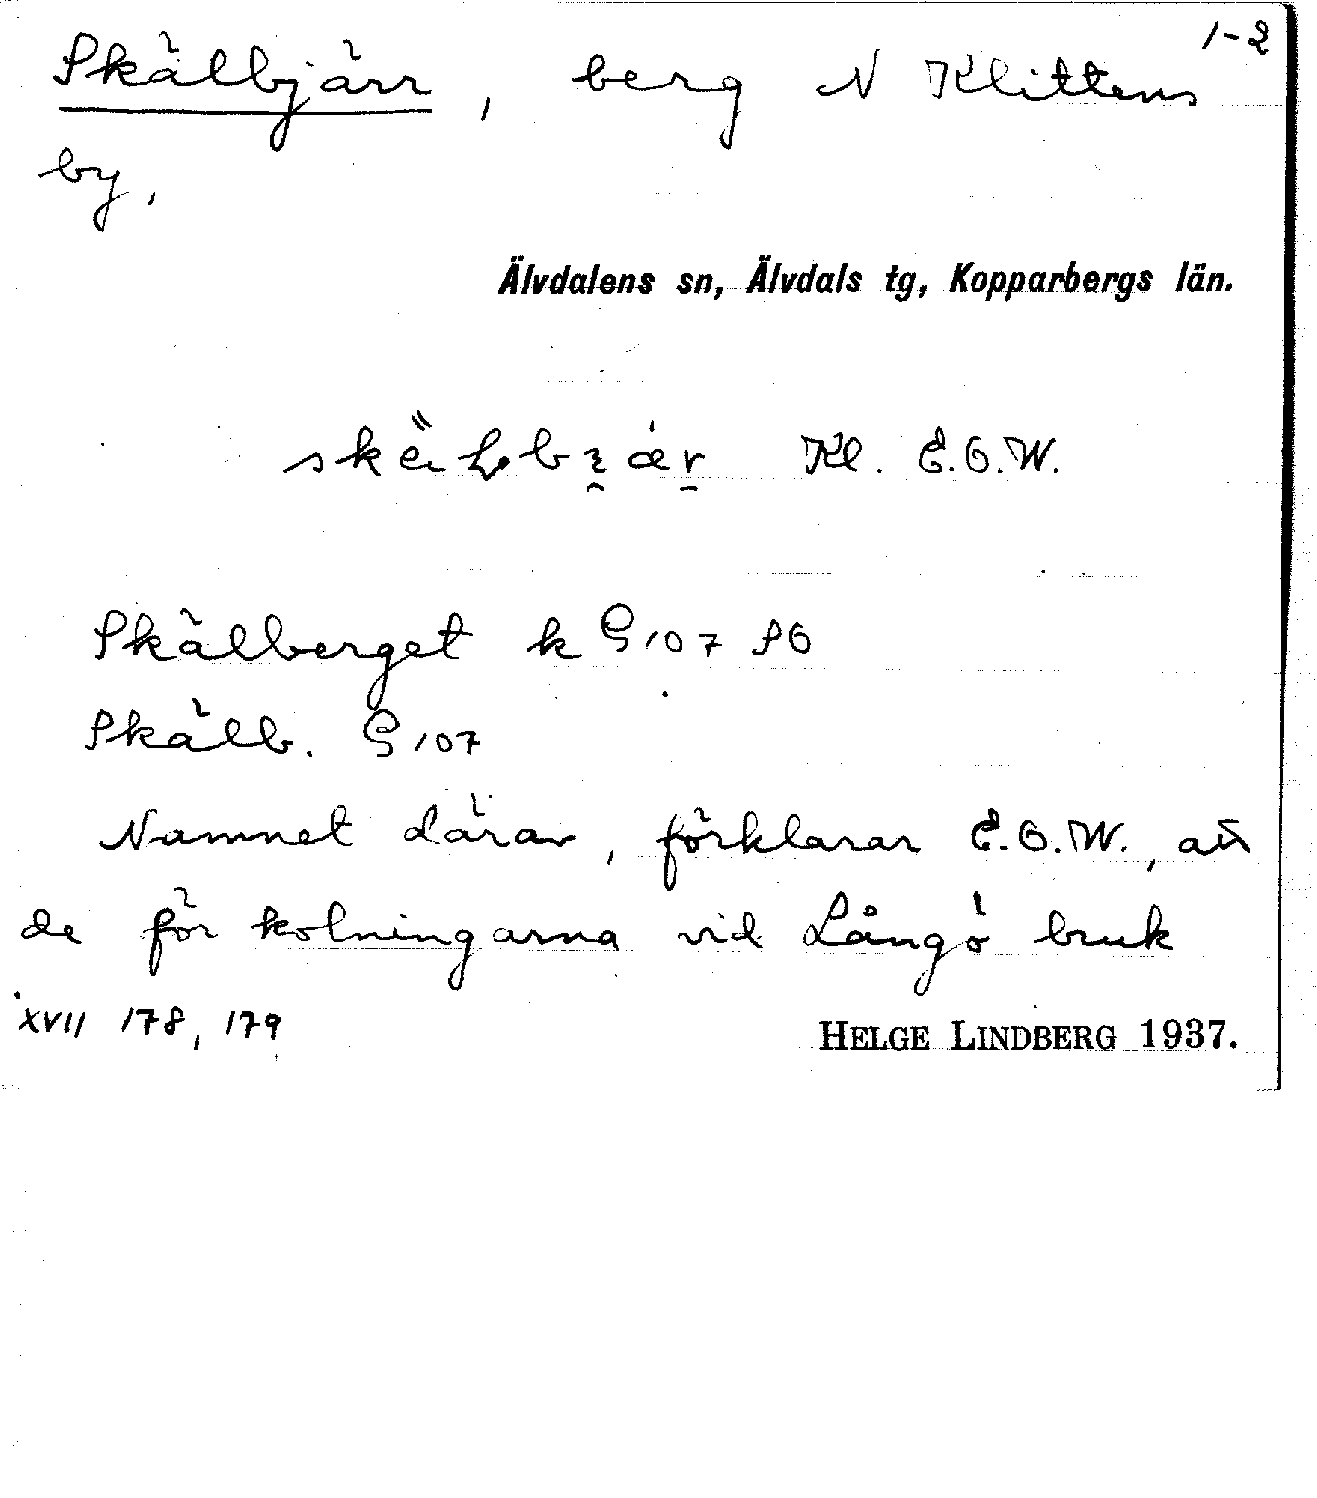 1-2
Skälbjärr, berg N Klittens
by,
Älvdalens sn, Älvdals tg, Kopparbergs län.
Kl. E.O.W.
Skälberget k G 107 SO
Skälb. G 107
Namnet därav, förklarar E.O.W., att
de för kolningarna vid Långö bruk
XVII 178, 179
HELGE LINDBERG 1937.